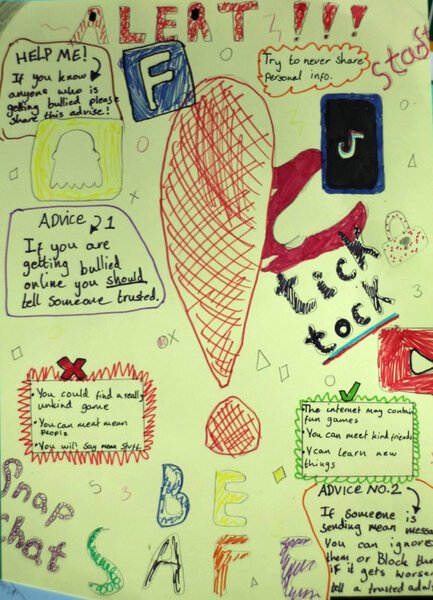 ALERT!!!
HELP ME!
If you know
anyone who is
getting bullied please
share this advise!
F
Try to never share
Personal info.
ADVICE 1
If you are
getting bullied
online you should
tell someone trusted.
tick
tock
• You could find a really
unkind game
• You can meat mean
People
• You will say mean stuff.
• The internet may contain
fun games
• You can meet kind friends
• Y can learn new
things
Snap
chat
BE
SAFE
ADVICE NO.2
If someone is
sending mean
You can ignore
them or Block
if it gets worse
tell a trusted